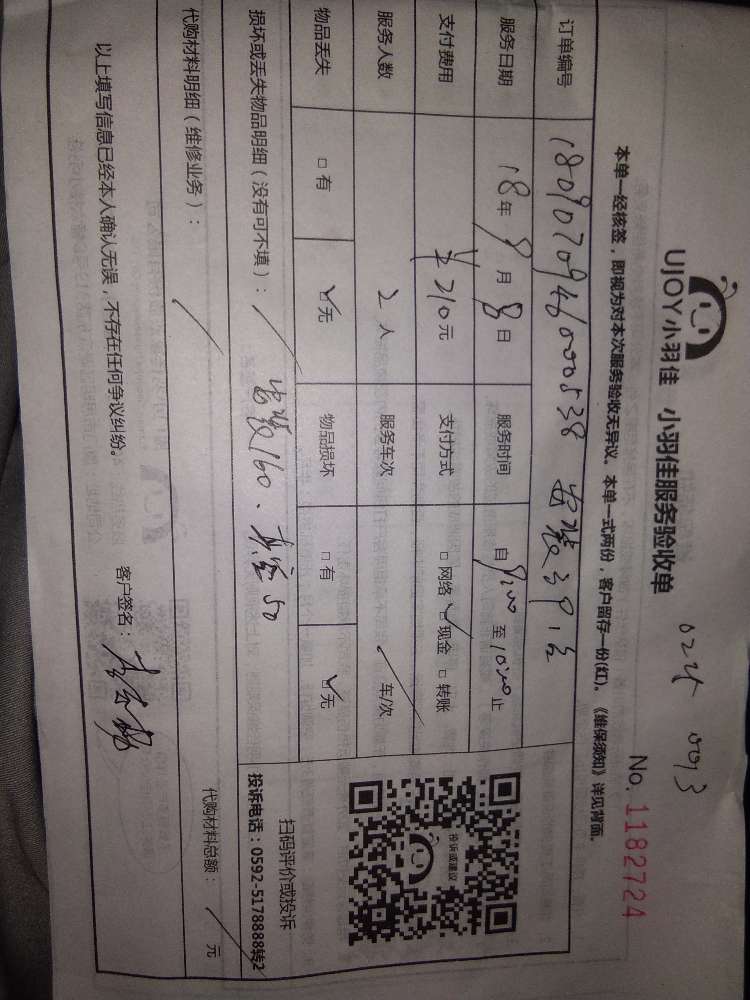 024 0093
UJOY小羽佳 小羽佳服务验收单
No. 1182724
本单一经核签，即视为对本次服务验收无异议。本单一式两份，客户留存一份(红)。《维保须知》详见背面。
订单编号 18090709460000538 安装3P1台
服务日期 18年 9月 8日 服务时间 自 9:00 至 10:00 止
支付费用 ¥210元 支付方式 □网络 ☑现金 □转账
服务人数 2人 服务车次 / 车/次
物品丢失 □有 ☑无 物品损坏 □有 ☑无
投诉或建议
扫码评价或投诉
投诉电话：0592-5178888转2
损坏或丢失物品明细（没有可不填）： / 安装160、真空50
代购材料明细（维修业务）： / 代购材料总额： / 元
以上填写信息已经本人确认无误，不存在任何争议纠纷。 客户签名：